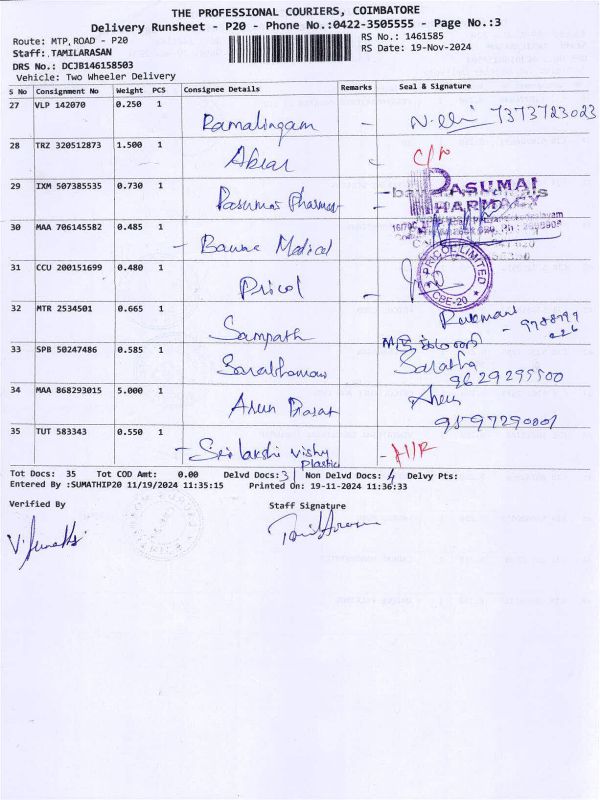 THE PROFESSIONAL COURIERS, COIMBATORE
Delivery Runsheet - P20 - Phone No.:0422-3505555 - Page No.:3
Route: MTP,ROAD - P20
RS No.: 1461585
Staff: TAMILARASAN
RS Date: 19-Nov-2024
DRS No.: DCJB146158503
Vehicle: Two Wheeler Delivery
S No Consignment No Weight PCS Consignee Details Remarks Seal & Signature
27 VLP 142070 0.250 1 Ramalingam - 7373723023
28 TRZ 320512873 1.500 1 - C/R
29 IXM 507385535 0.730 1 Pasumai Pharmacy - PASUMAI PHARMACY
30 MAA 706145582 0.485 1 - Medical
31 CCU 200151699 0.480 1 Pricol - PRICOL LIMITED CBE-20
32 MTR 2534501 0.665 1 Sampath
33 SPB 50247486 0.585 1 Saratha 9629295500
34 MAA 868293015 5.000 1 Arun Prasat Arun 9597290001
35 TUT 583343 0.550 1 - Sri lakshi vishnu plastic
Tot Docs: 35 Tot COD Amt: 0.00 Delvd Docs: 31 Non Delvd Docs: 4 Delvy Pts:
Entered By :SUMATHIP20 11/19/2024 11:35:15 Printed On: 19-11-2024 11:36:33
Verified By Staff Signature